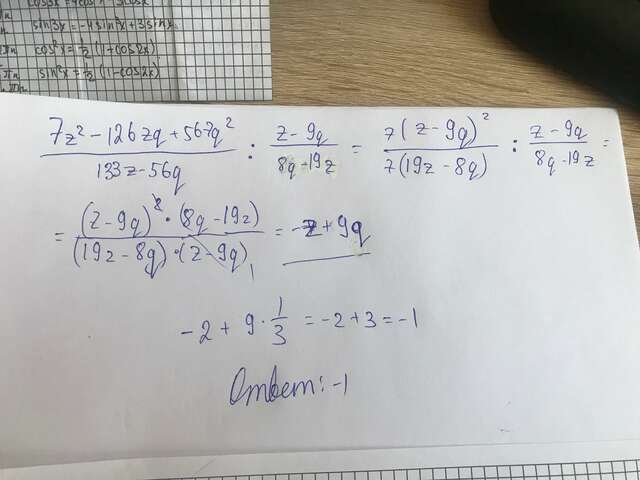 sin3x = -4sin³x+3sinx
cos²x = 1/2 (1+cos2x)
sin²x = 1/2 (1-cos2x)
(7z² - 126zq + 567q²)/(133z - 56q) : (z - 9q)/(8q - 19z) = 7(z - 9q)²/7(19z - 8q) : (z - 9q)/(8q - 19z) =
= (z - 9q)² · (8q - 19z)/(19z - 8q) · (z - 9q) 1 = -z + 9q
-2 + 9 · 1/3 = -2 + 3 = -1
Ответ: -1